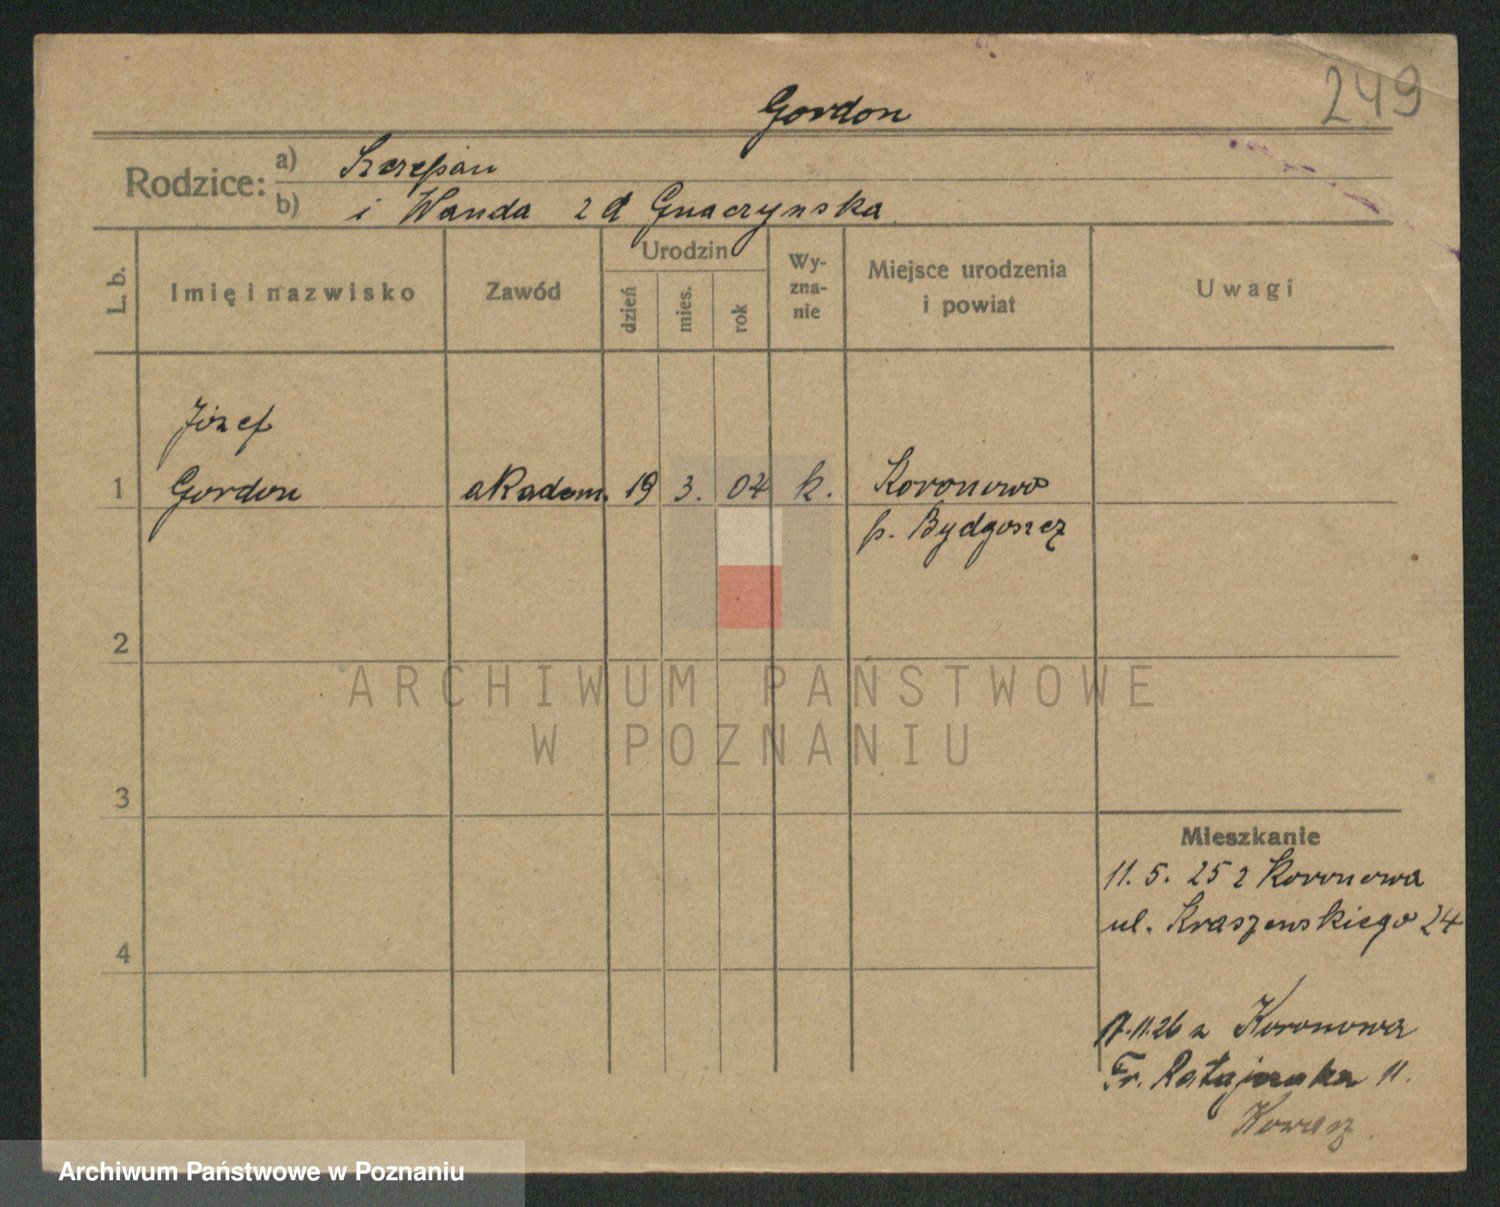 249
Gordon
Rodzice: a) Szczepan
b) i Wanda z d Gnaczynska
L. b. Imię i nazwisko Zawód Urodzin dzień mies. rok Wy-zna-nie Miejsce urodzenia i powiat Uwagi
Józef
1 Gordon akadem. 19 3. 04 k. Koronowo
p. Bydgoszcz
2
ARCHIWUM PAŃSTWOWE
W POZNANIU
3
Mieszkanie
11. 5. 25 z Koronowa
ul. Kraszewskiego 24
4
11.26 z Koronowa
Fr. Ratajczaka 11.
Archiwum Państwowe w Poznaniu